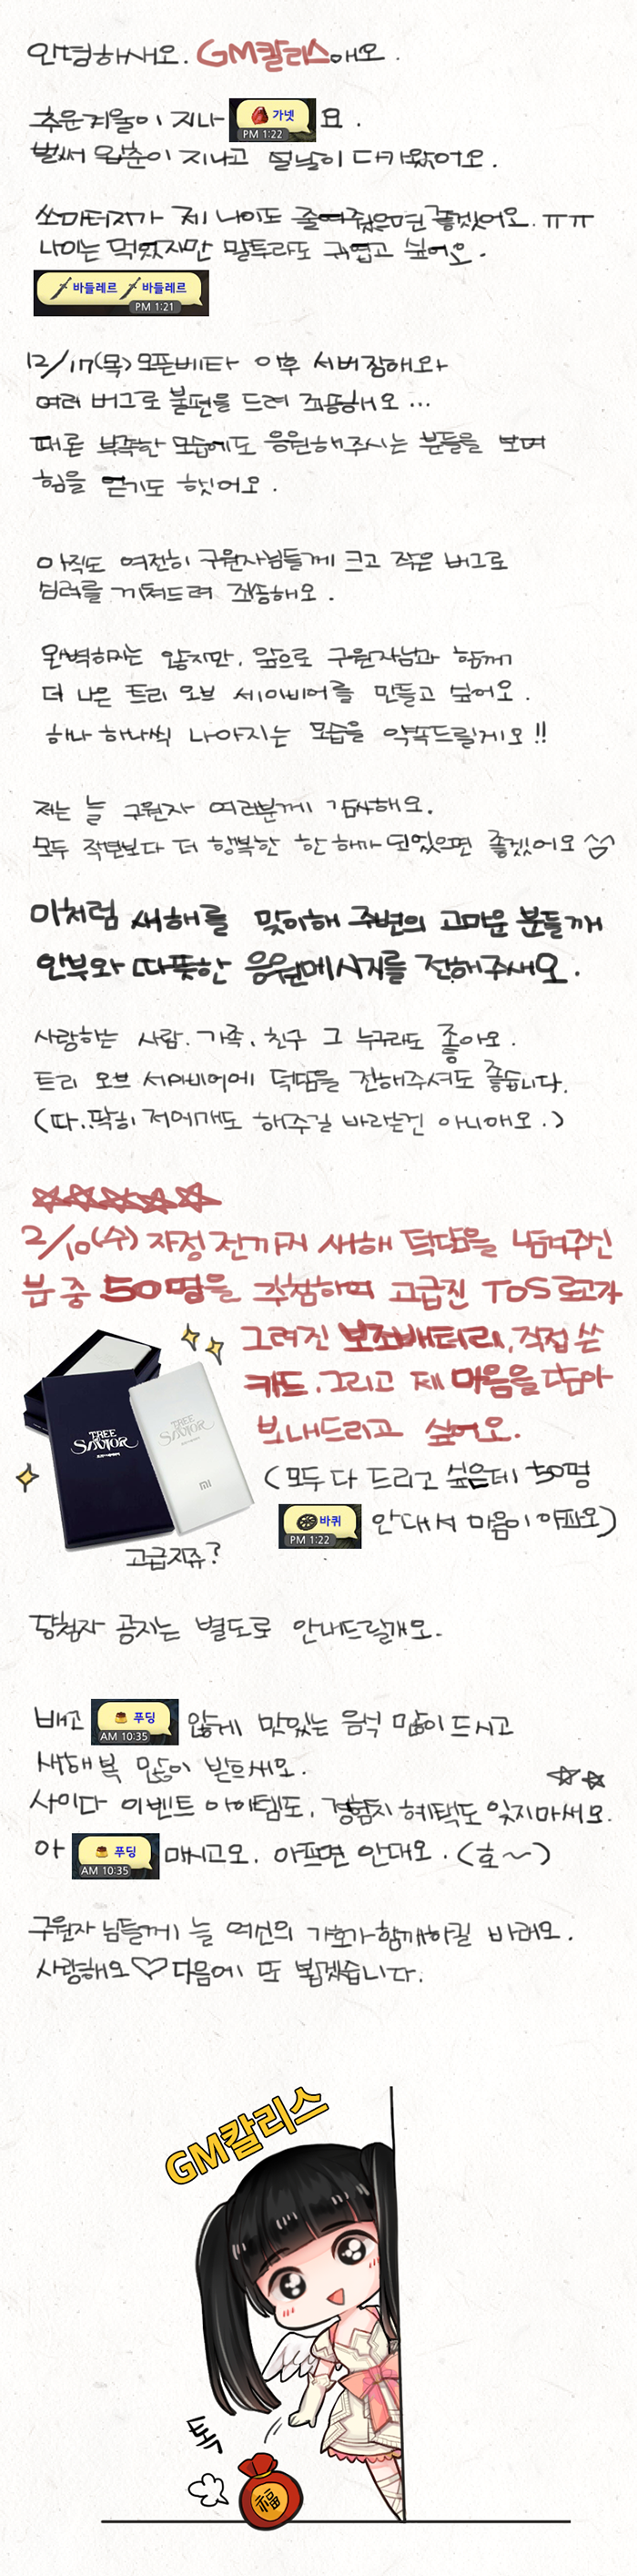 안녕하세요. GM칼리스에요.
추운겨울이 지나 가넷 요.
PM 1:22
벌써 입춘이 지나고 설날이 다가왔어요.
쏘마터지가 제 나이도 줄여줬으면 좋겠어요. ㅠㅠ
나이는 먹었지만 말투라도 귀엽고 싶어요.
바들레르 바들레르
PM 1:21
12/17(목) 오픈베타 이후 서버점해와
여러 버그로 불편을 드려 죄똥해요...
때론 부족한 모습에도 응원해주시는 분들을 보며
힘을 얻기도 했어요.
아직도 여전히 구원자님들께 크고 작은 버그로
심려를 끼쳐드려 죄송해요.
완벽하지는 않지만, 앞으로 구원자님과 함께
더 나은 트리 오브 세이비어를 만들고 싶어요.
하나 하나씩 나아지는 모습을 약속드릴게요!!
저는 늘 구원자 여러분께 감사해요.
모두 작년보다 더 행복한 한 해가 되었으면 좋겠어요
이처럼 새해를 맞이해 주변의 고마운 분들께
안부와 따뜻한 응원메시지를 전해주세요.
사랑하는 사람, 가족, 친구 그 누구라도 좋아요.
트리 오브 세이비어에 덕담을 전해주셔도 좋습니다.
(따..딱히 저에게도 해주길 바라는건 아니에요.)
2/10(수) 자정 전까지 새해 덕담을 남겨주신
분 중 50명을 추첨하여 고급진 TOS 로고가
그려진 보조배터리, 직접 쓴
카드, 그리고 제 마음을 담아
보내드리고 싶어요.
TREE OF SAVIOR
TREE OF SAVIOR
MI
(모두 다 드리고 싶은데 50명
바퀴 안대서 마음이 아파요)
PM 1:22
고급지쥬?
당첨자 공지는 별도로 안내드릴게요.
배고 푸딩 않게 맛있는 음식 많이 드시고
AM 10:35
새해 복 많이 받으세요.
사이다 이벤트 아이템도, 경험치 혜택도 잊지마세요.
아 푸딩 매시고요. 아프면 안대요. (호~)
AM 10:35
구원자 님들께 늘 여신의 가호가 함께하길 바래요.
사랑해요♡ 다음에 또 뵙겠습니다.
GM칼리스
톡
福